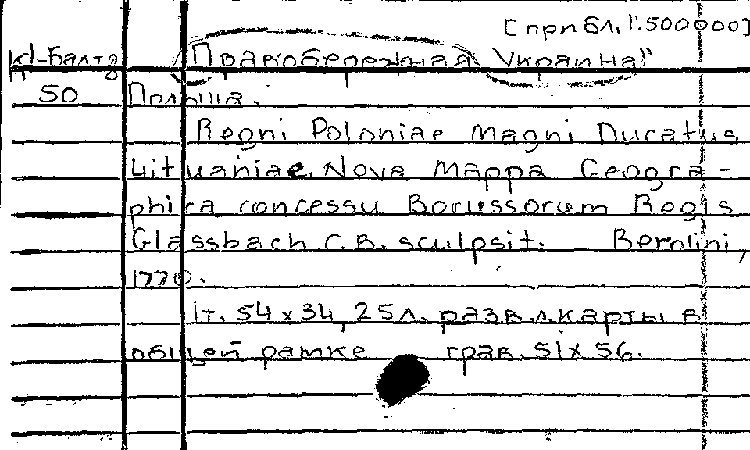 [прибл. 1:500000]
К1-Балтз Правобережная Украина!"
50 Польша.
Regni Poloniae Magni Ducatus
Lituaniae. Nova Mappa Geogra-
phica concessu Borussorum Regis
Glassbach C.B. sculpsit. Berolini,
1770.
1т. 54x34, 25л. разв.л.карты в
общей рамке грав. 51x56.